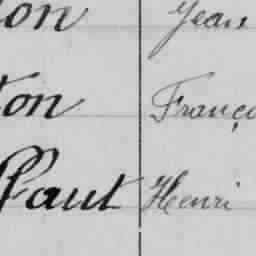 on Jean
ton Franço
Paut Henri